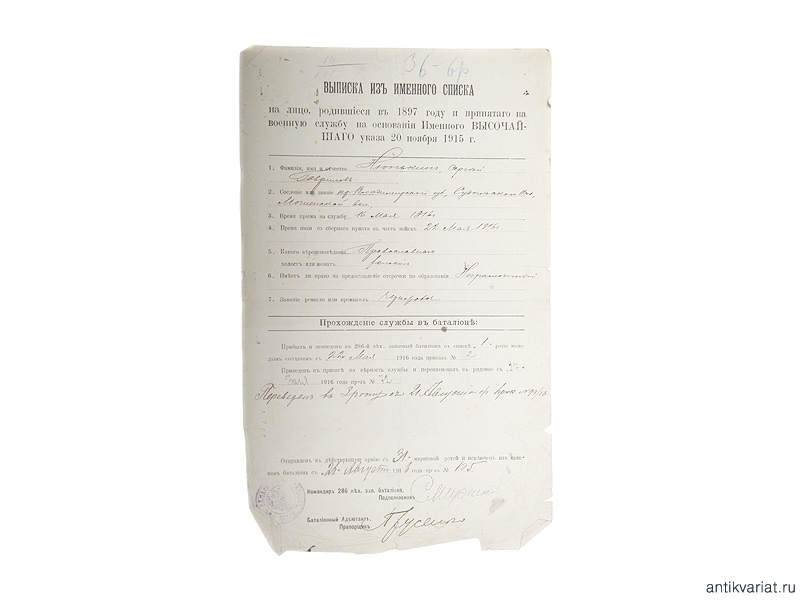 36 - бр
ВЫПИСКА ИЗЪ ИМЕННОГО СПИСКА
на лицо, родившіеся въ 1897 году и принятаго на
военную службу на основаніи Именного ВЫСОЧАЙ-
ШАГО указа 20 ноября 1915 г.
1. Фамилія, имя и отчество Сергѣй
Гаврилов
2. Сословіе или званіе кр. Владимірской губ, Судогодской
Мошенской вол.
3. Время пріема на службу 16 Мая 1916 г
4. Время явки со сборнаго пункта въ часть войскъ 22 Мая 1916 г
5. Какого вѣроисповѣданія Православнаго
холостъ или женатъ холостъ
6. Имѣетъ ли право на предоставленіе отсрочки по образованію Неграмотный
7. Знаніе ремесло или промыселъ
Прохожденіе службы въ баталіонѣ:
Прибылъ и зачисленъ въ 286-й пѣх. запасный баталіонъ въ списки 1- роты моло-
дымъ солдатомъ с 22 Мая 1916 года приказъ № 2
Приведенъ къ присягѣ на вѣрность службы и переименованъ въ рядовые съ
1916 года пр-зъ № 72
Переведен в 3 роту с 21 Августа
Отправленъ въ дѣйствующую армію съ 31- маршевой ротой и исключенъ изъ спи-
ковъ баталіона съ 21 Августа 1916 года пр-зъ № 195.
Командиръ 286 пѣх. зап. баталіона,
Подполковникъ
Баталіонный Адъютантъ,
Прапорщикъ
antikvariat.ru